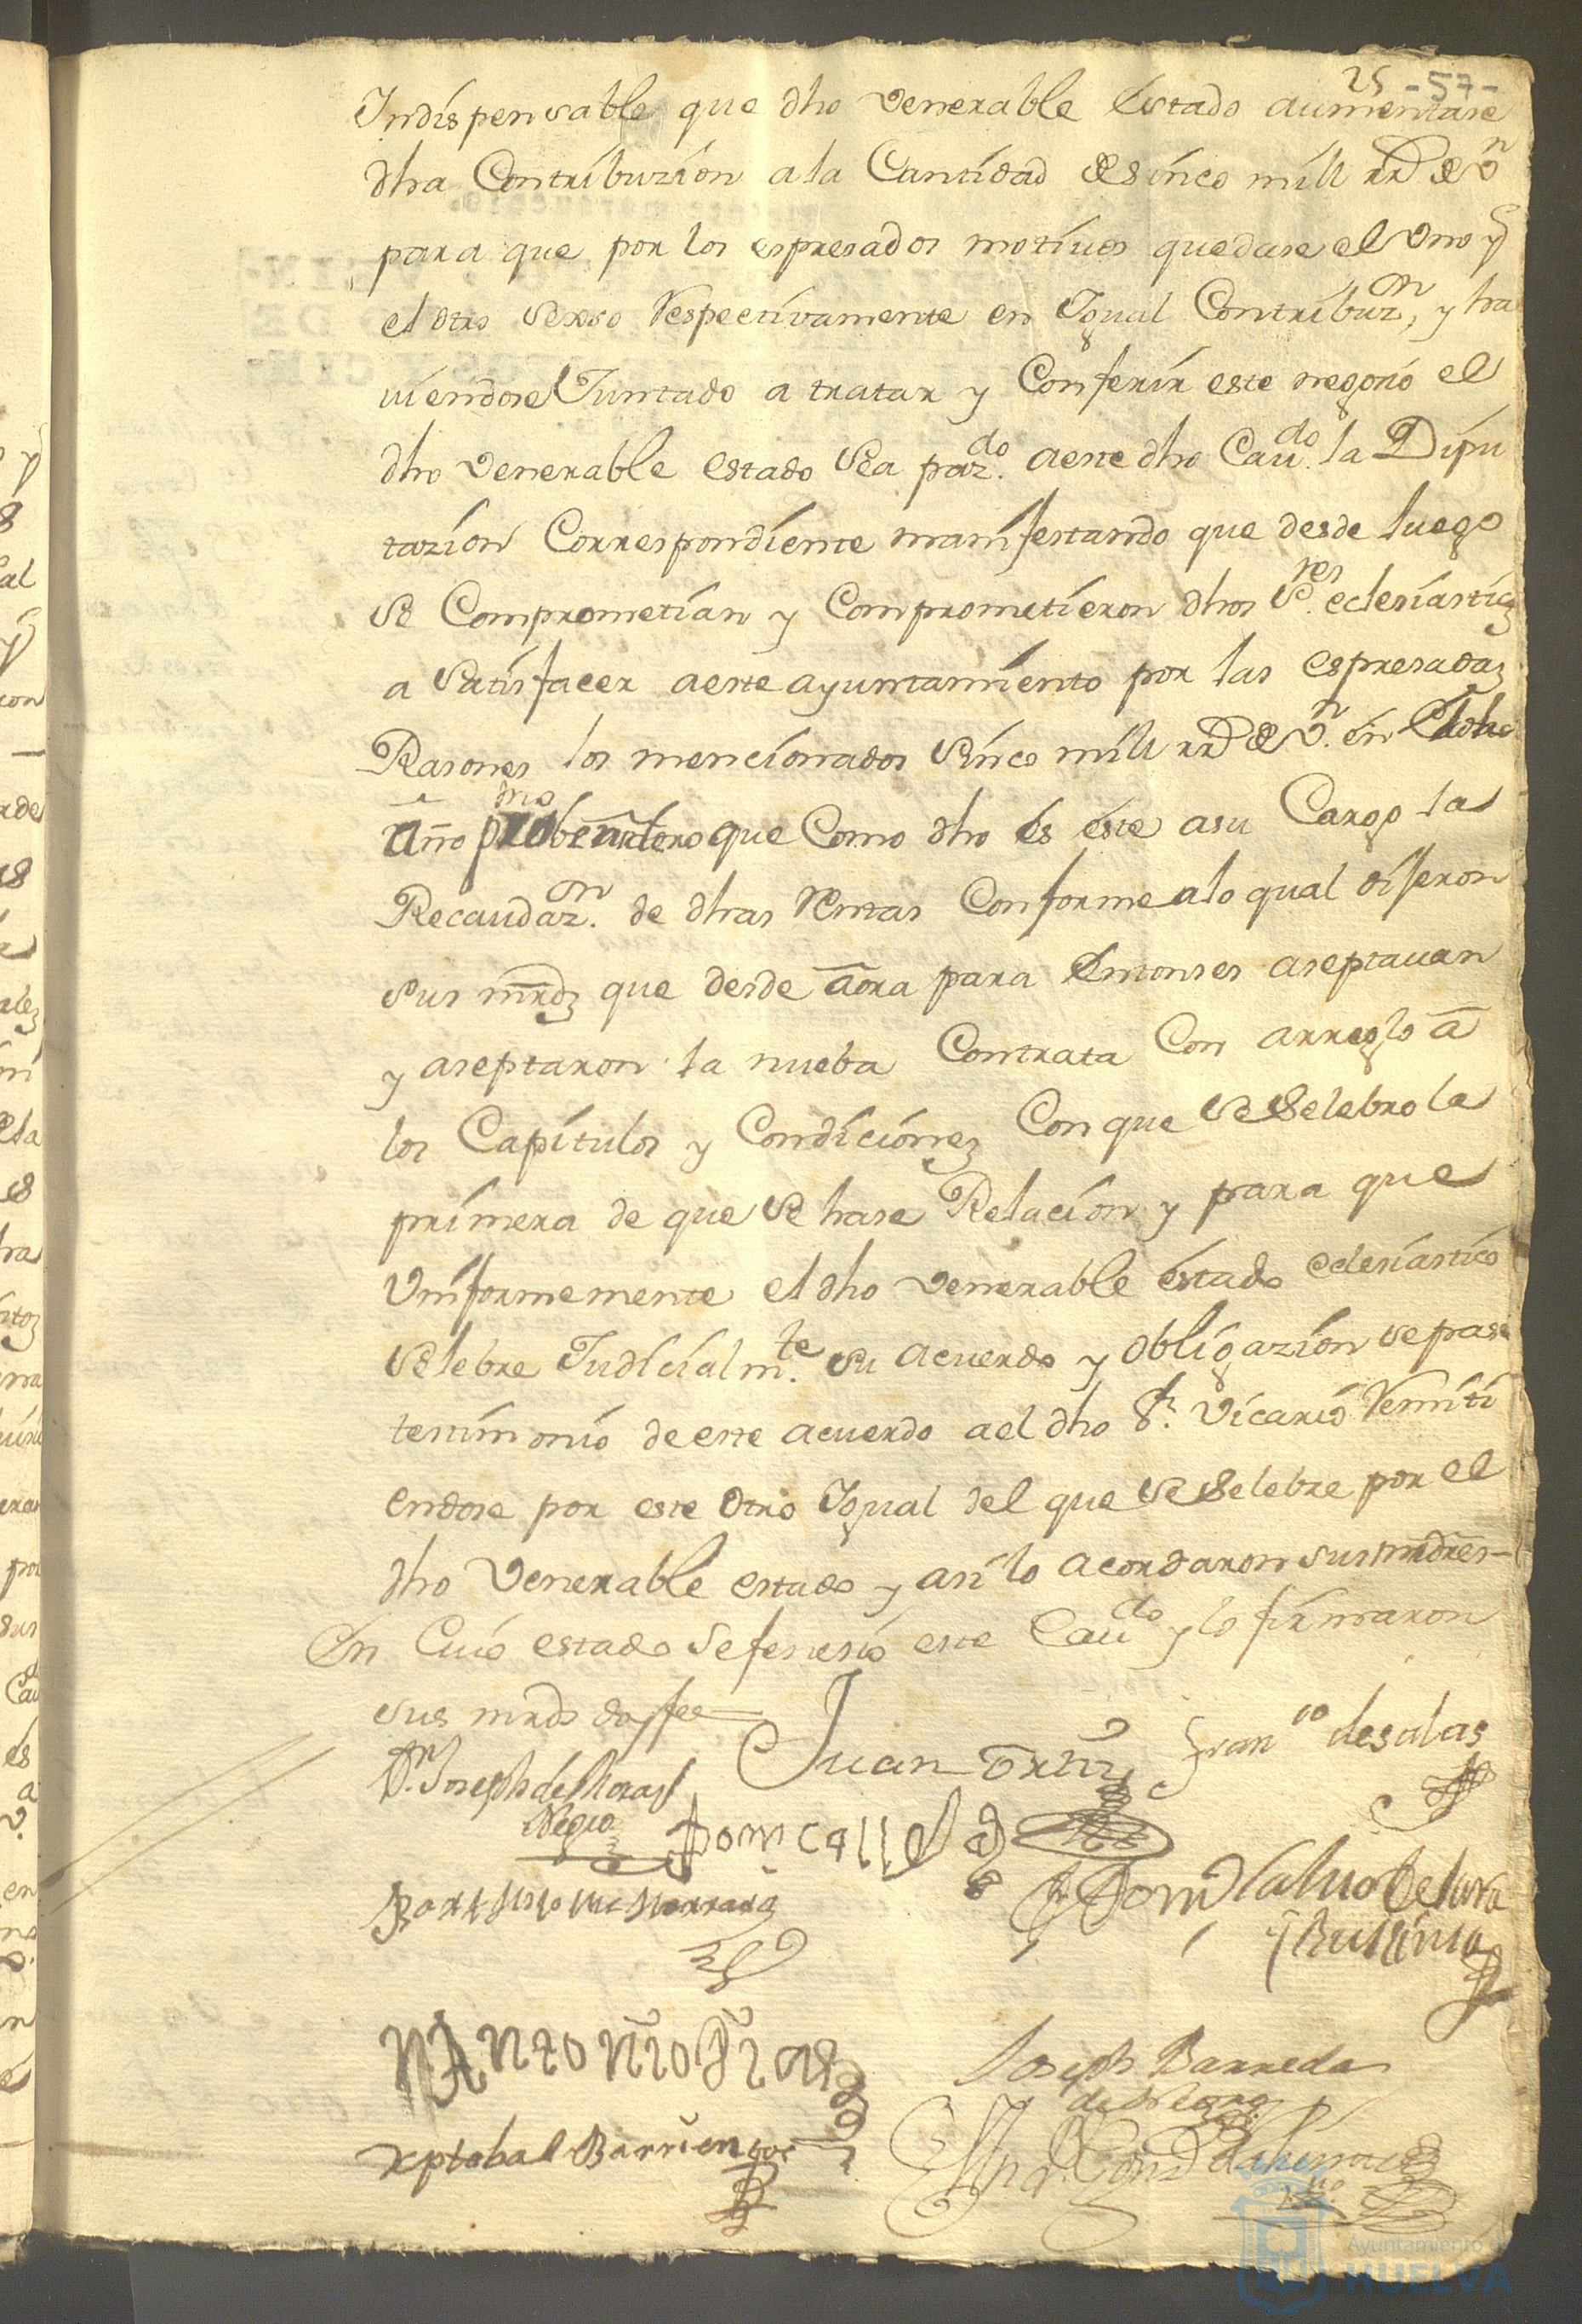 25 -57-
Indispensable que dho Venerable estado aumentase
dha Contribuzion a la Cantidad de sinco mill rrs de vn
para que por los espresados motiuos quedase el Vno y
el otro sexso Respectivamente en Igual Contribuzn, y ha
uiendose Juntado a tratar y Conferir este negocio el
dho Venerable estado Sea pazdo. a este dho Caudo. la Dipu
tazion Correspondiente manifestando que desde luego
se Comprometian y Comprometieron dhos Sres. eclesiasticos
a Satisfacer a este ayuntamiento por las espresadas
Rasones los mencionados Sinco mill rrs de vn. en
año que Como dho es este a su Cargo la
Recaudazn. de dhas Rentas Conforme a lo qual diseron
sus mrds que desde aora para Entonses aseptauan
y aseptaron la nueba Contrata Con arreglo a
los Capitulos y Condiciones Con que se Selebro la
primera de que se hase Relacion y para que
Vniformemente el dho Venerable estado eclesiastico
Selebre Judicialmte. su acuerdo y obligazion se pase
testimonio de este acuerdo a el dho Sr. Vicario Remiti
endose por este otro Igual del que se Selebre por el
dho Venerable estado y asi lo acordaron sus mrdes-
En Cuio estado se fenesio este Caudo y lo firmaron
sus mrds doy fee
Juan
Franco de salas
Dn. Joseph de
Negro
Joseph Barreda
de
Antonio Dias
Xptobal Barrientos
Ayuntamiento de
HUELVA